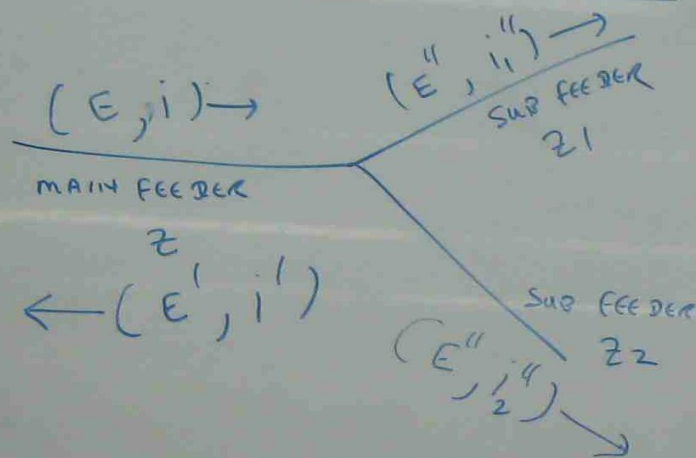 (E, i) →
MAIN FEEDER
Z
← (E', i')
(E'', i₁'') →
SUB FEEDER
Z1
SUB FEEDER
Z2
(E'', i₂'') →